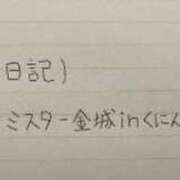 日記)
ミスター金城inくにん